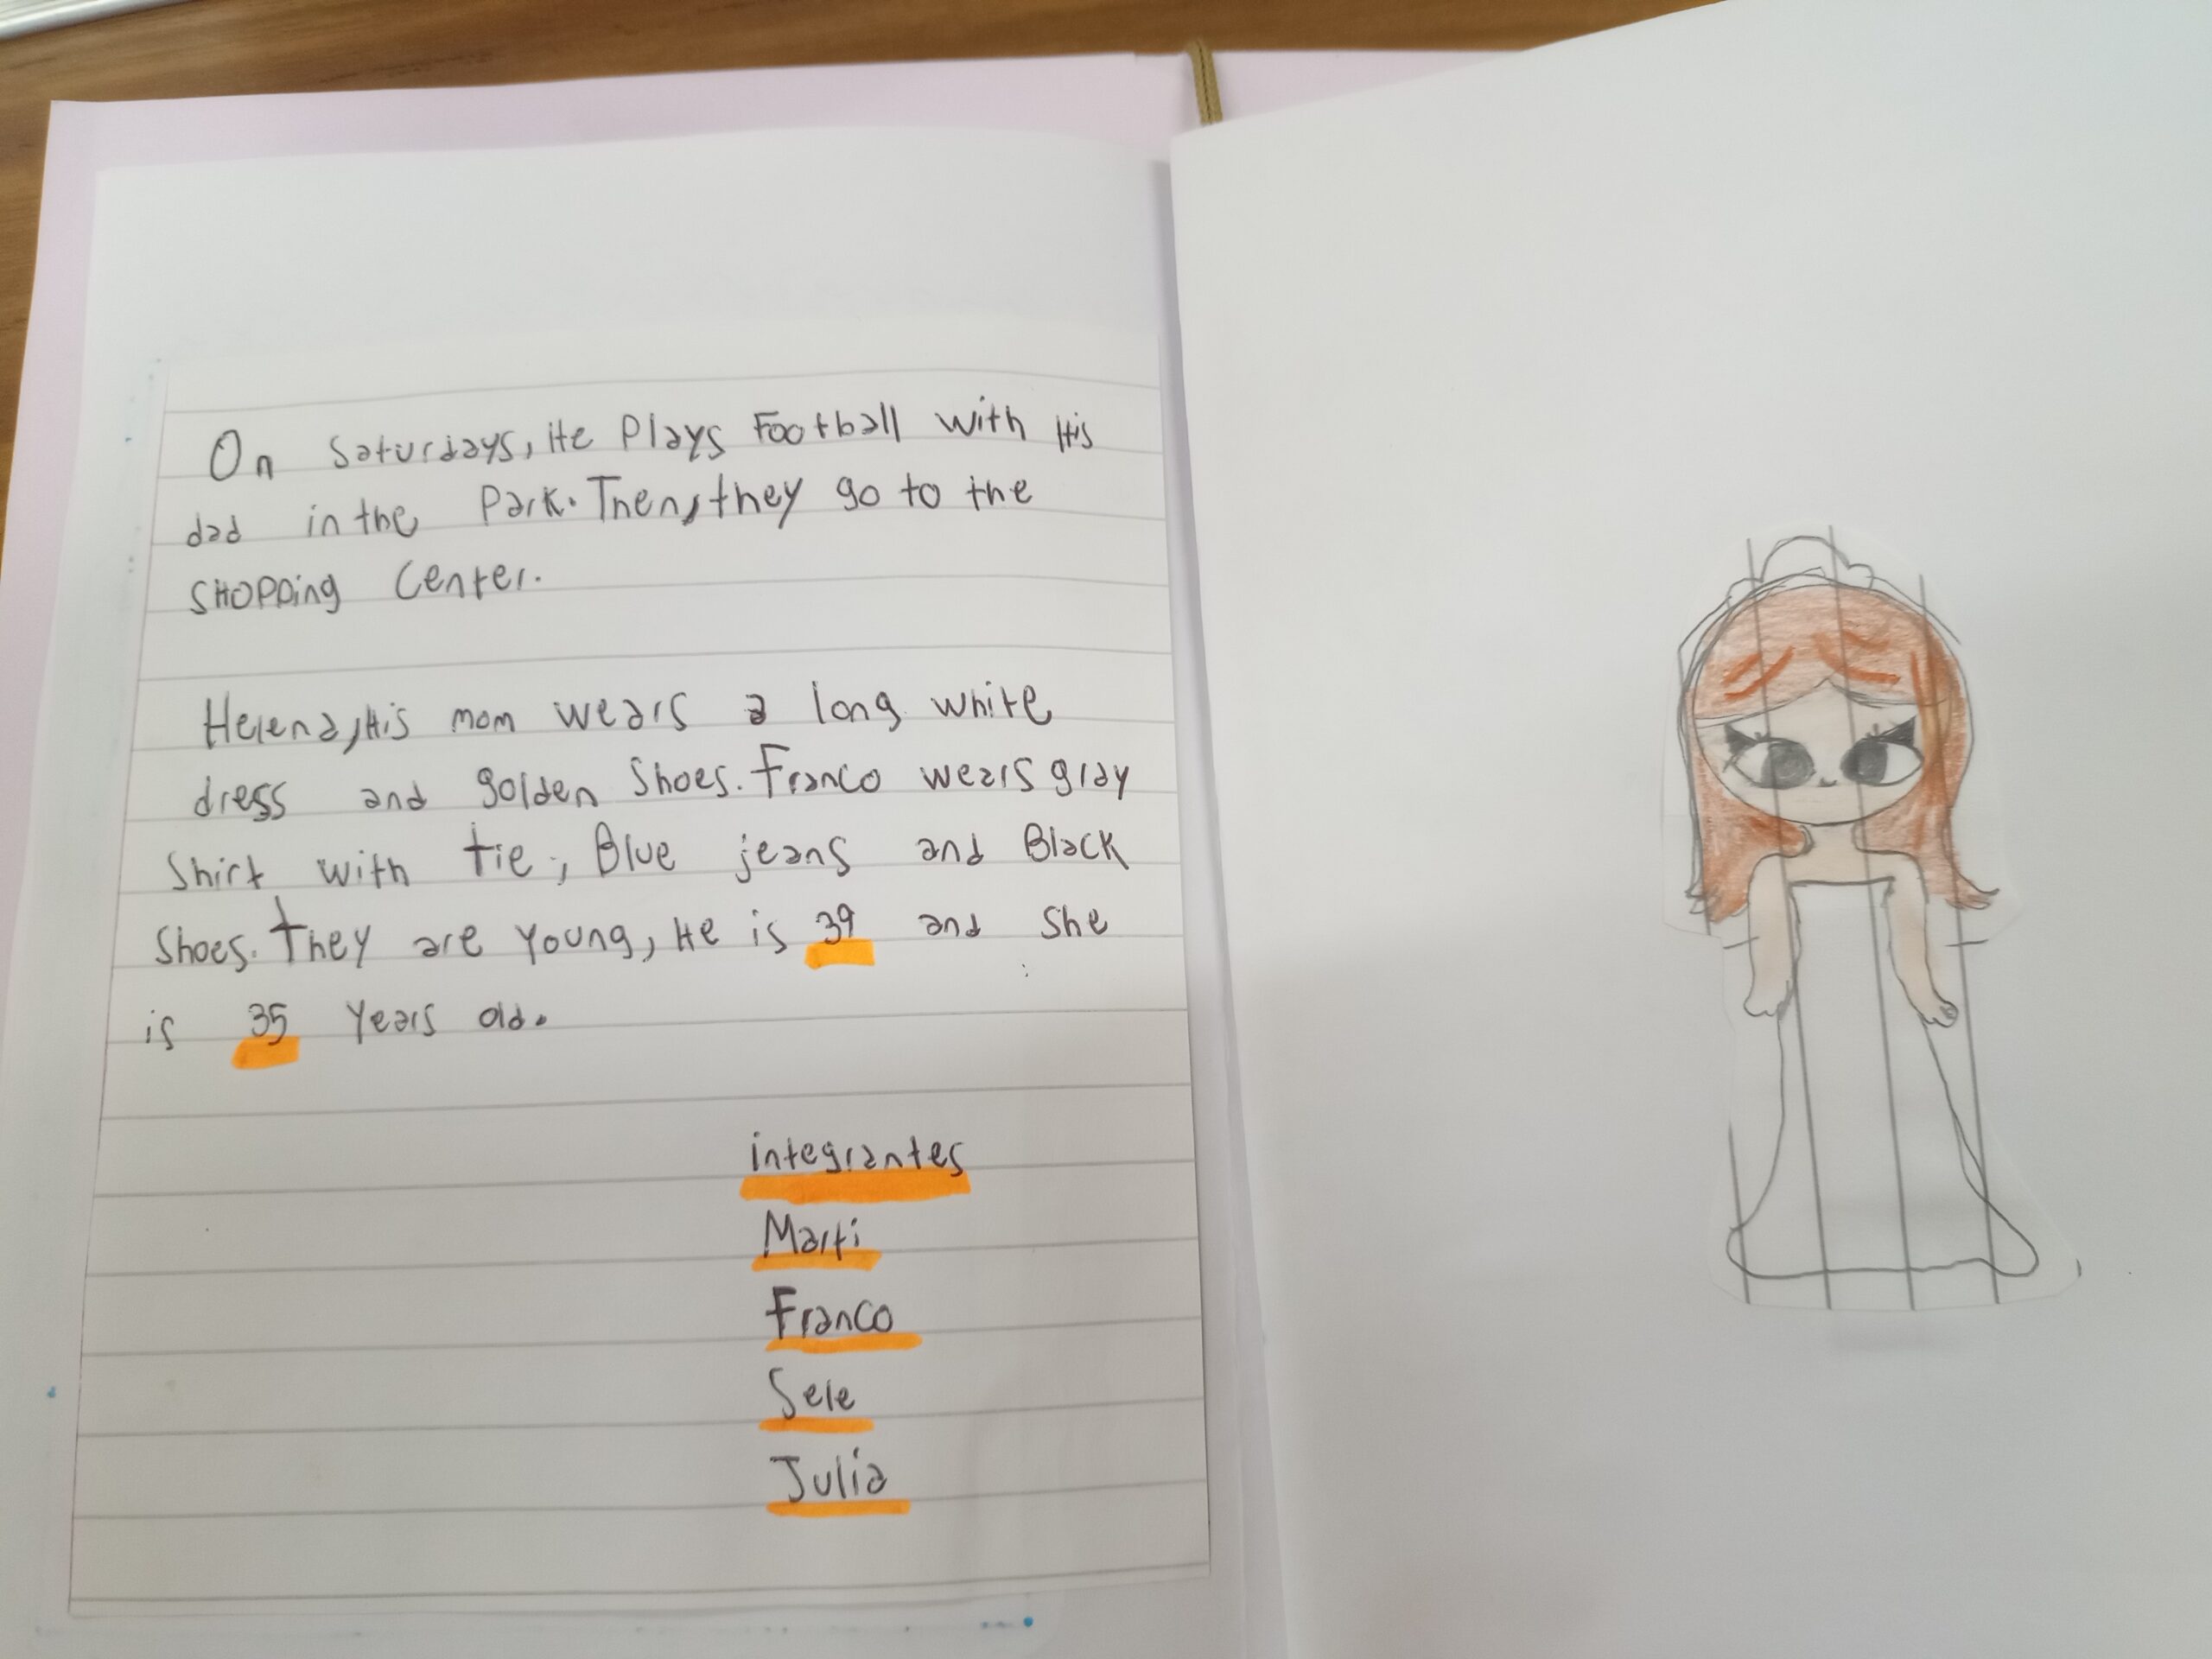 On Saturdays, He Plays Football with His
dad in the Park. Then, they go to the
SHOPPing Center.
Helena, His mom wears a long white
dress and golden Shoes. Franco wears gray
Shirt with tie, Blue jeans and Black
Shoes. They are Young, He is 39 and She
is 35 Years old.
integrantes
Marti
Franco
Sele
Julia